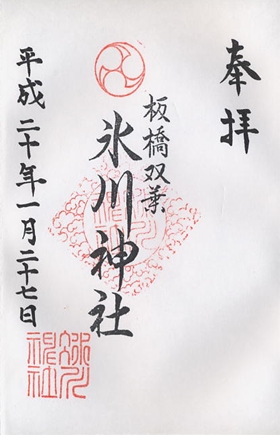 奉拝
板橋双葉
氷川神社
平成二十年一月二十七日
氷川
神社